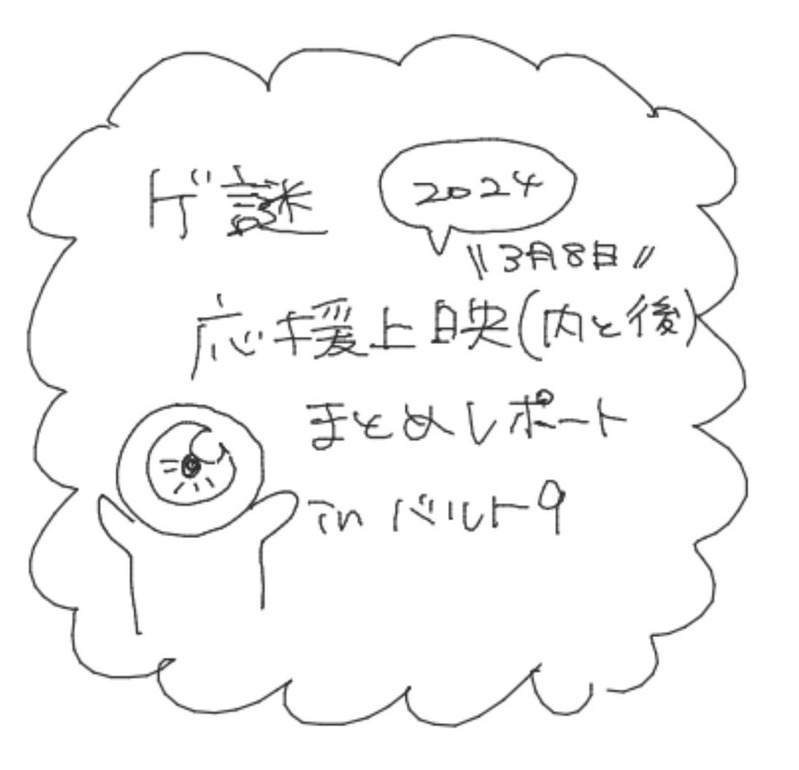 ゲ謎
2024
〃3月8日〃
応援上映(内と後)
まとめレポート
in バルト9